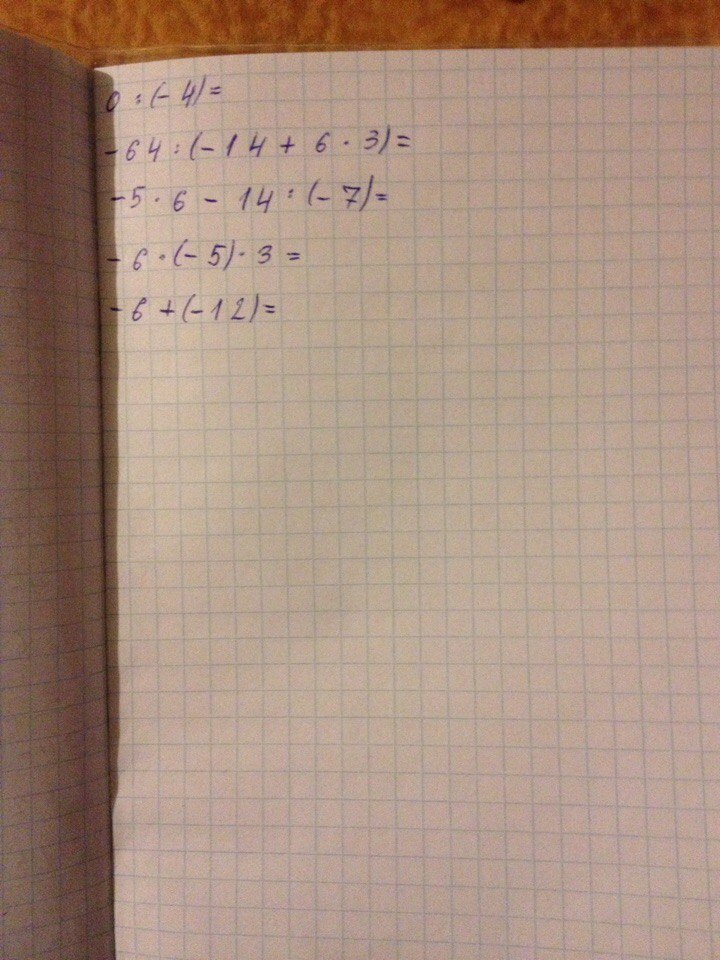 0 : (- 4) =
- 64 : (- 14 + 6 · 3) =
- 5 · 6 - 14 : (- 7) =
- 6 · (- 5) · 3 =
- 6 + (- 12) =